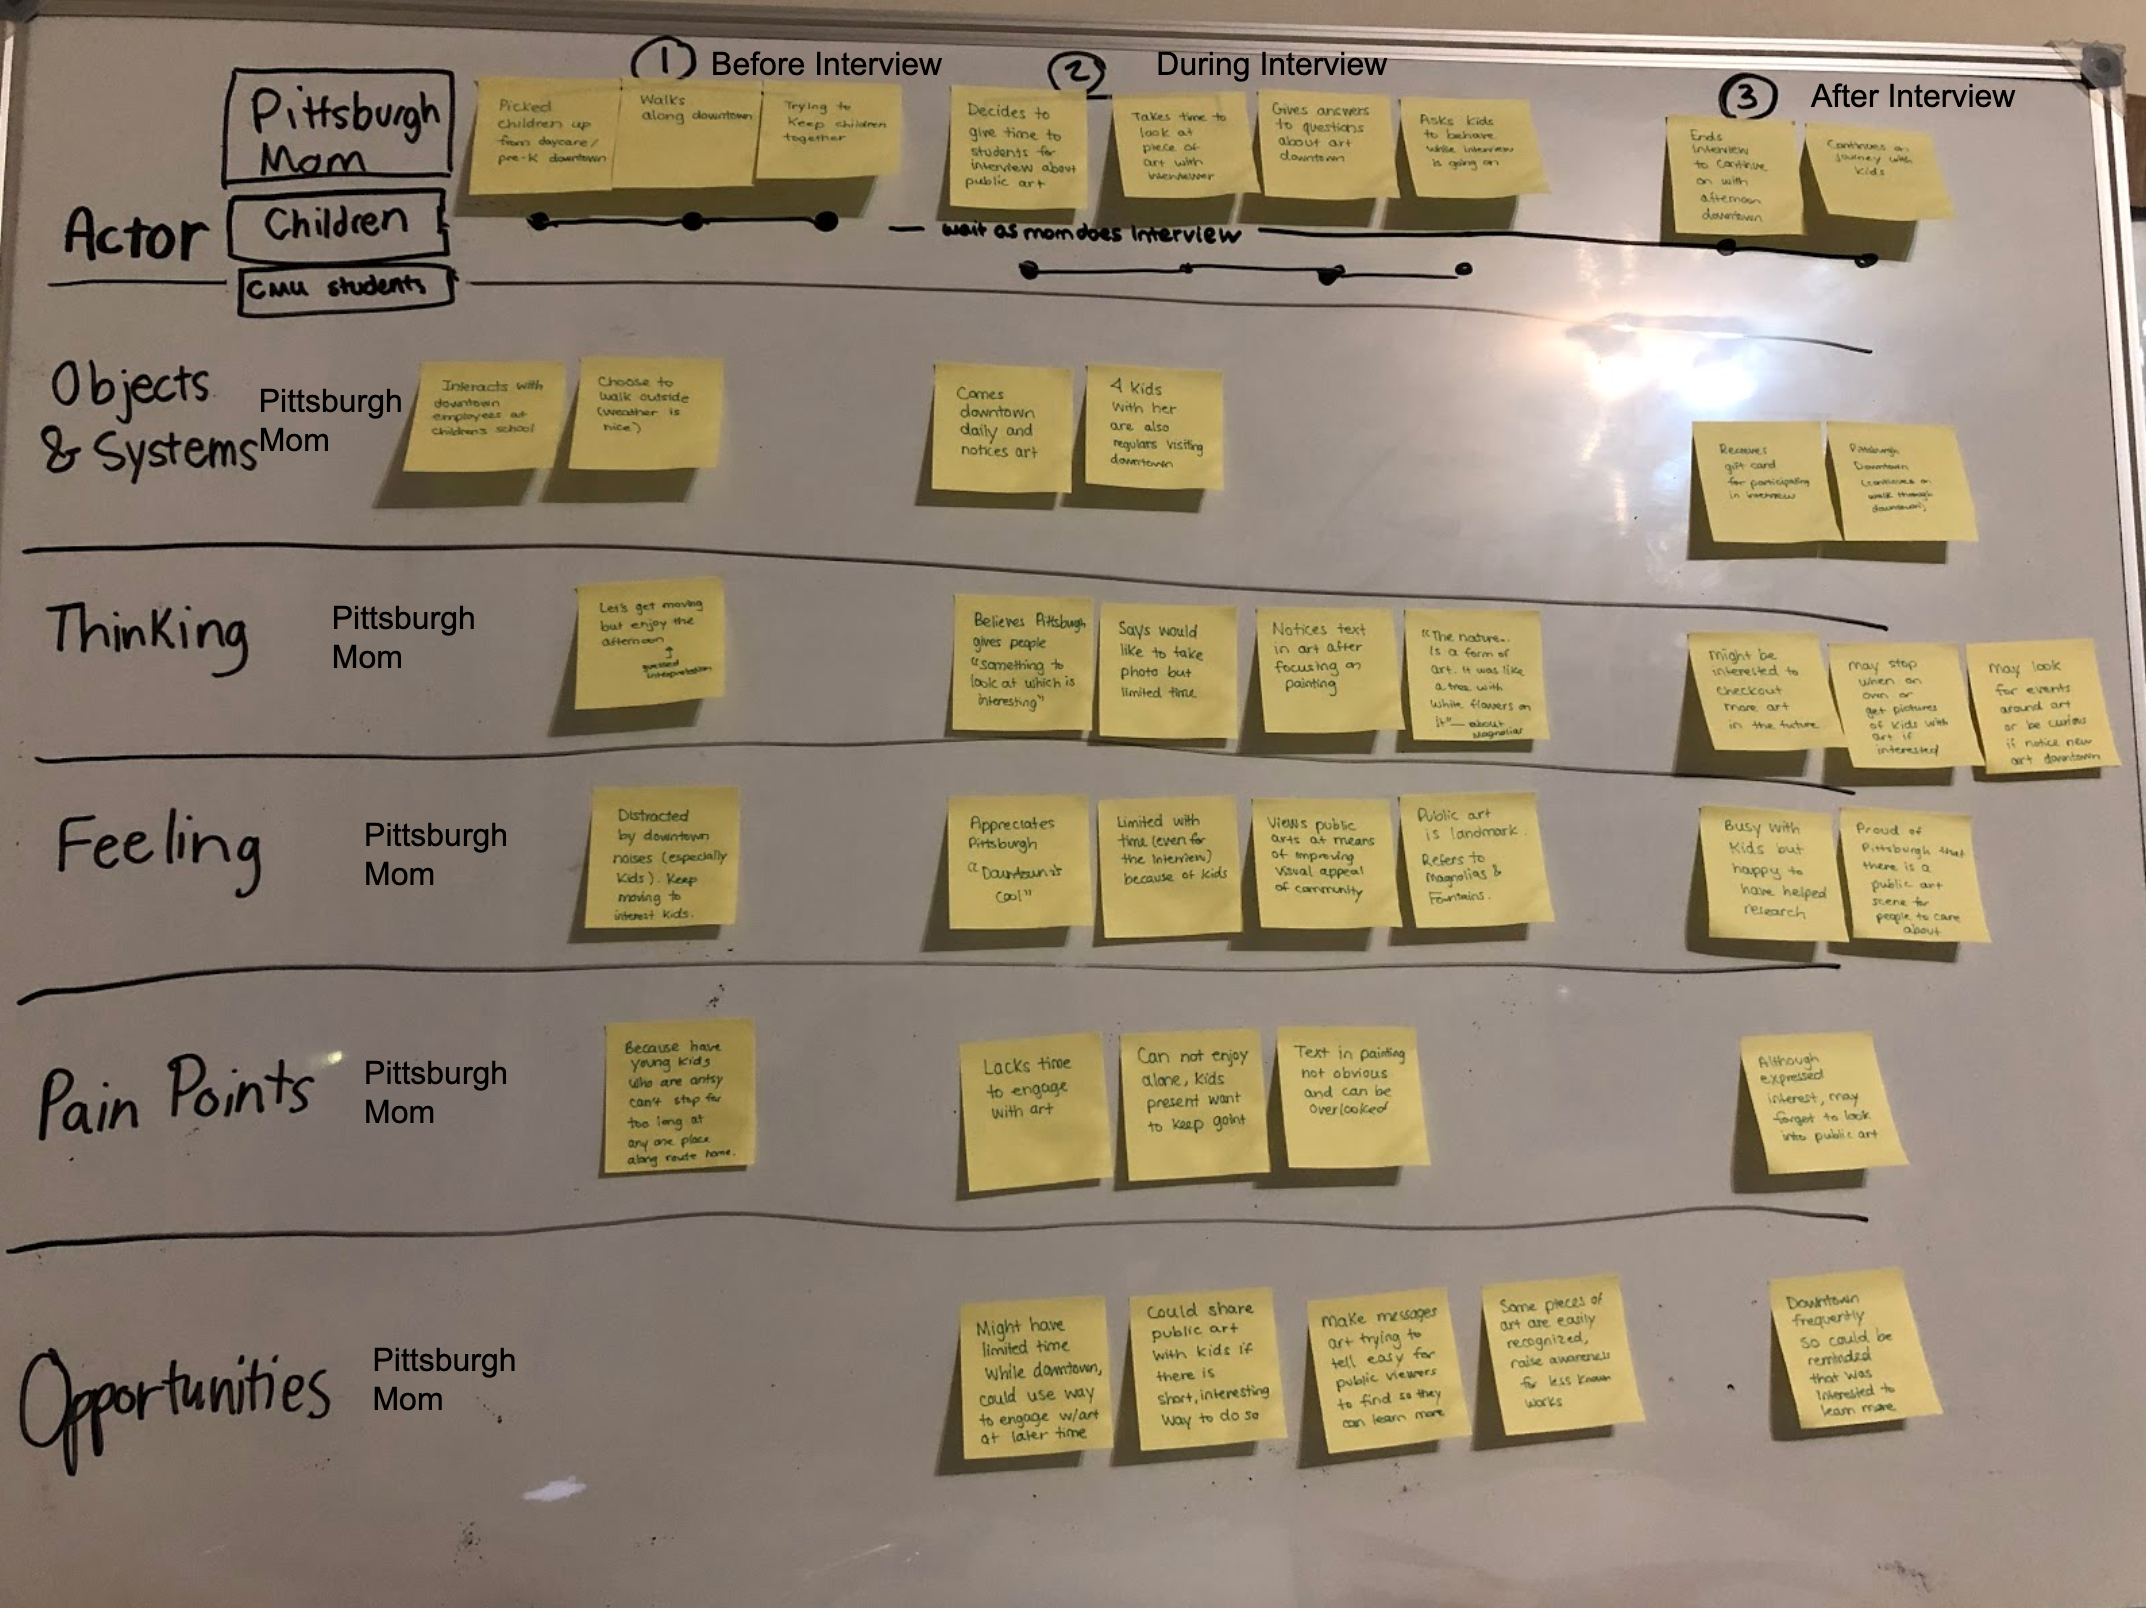 1 Before Interview
2 During Interview
3 After Interview
Pittsburgh
Mom
Children
Actor
CMU students
Picked
children up
from daycare/
pre-K downtown
Walks
along downtown
Trying to
Keep children
together
Decides to
give time to
students for
interview about
public art
Takes time to
look at
piece of
art with
interviewer
Gives answers
to questions
about art
downtown
Asks kids
to behave
while interview
is going on
Ends
interview
to continue
on with
afternoon
downtown
Continues on
journey with
kids
wait as mom does Interview
Objects
& Systems
Pittsburgh
Mom
Interacts with
downtown
employees at
children's school
Choose to
walk outside
(weather is
nice)
Comes
downtown
daily and
notices art
4 kids
with her
are also
regulars visiting
downtown
Receives
gift card
for participating
in interview
Pittsburgh
Downtown
(continues on
walk through
downtown)
Thinking
Pittsburgh
Mom
Let's get moving
but enjoy the
afternoon
↑
guessed
interpretation
Believes Pittsburgh
gives people
"something to
look at which is
interesting"
Says would
like to take
photo but
limited time
Notices text
in art after
focusing on
painting
"The nature..
Is a form of
art. It was like
a tree with
white flowers on
it" — about
Magnolias
might be
interested to
checkout
more art
in the future
may stop
when on
own or
get pictures
of kids with
art if
interested
may look
for events
around art
or be curious
if notice new
art downtown
Feeling
Pittsburgh
Mom
Distracted
by downtown
noises (especially
kids). Keep
moving to
interest kids.
Appreciates
Pittsburgh
"Downtown is
cool"
Limited with
time (even for
the interview)
because of kids
Views public
arts at means
of improving
visual appeal
of community
Public art
is landmark.
Refers to
Magnolias &
Fountains.
Busy with
kids but
happy to
have helped
research
Proud of
Pittsburgh that
there is a
public art
scene for
people to care
about
Pain Points
Pittsburgh
Mom
Because have
young kids
who are antsy
can't stop for
too long at
any one place
along route home.
Lacks time
to engage
with art
Can not enjoy
alone, kids
present want
to keep goint
Text in painting
not obvious
and can be
overlooked
Although
expressed
interest, may
forget to look
into public art
Opportunities
Pittsburgh
Mom
Might have
limited time
while downtown,
could use way
to engage w/art
at later time
Could share
public art
with kids if
there is
short, interesting
way to do so
Make messages
art trying to
tell easy for
public viewers
to find so they
can learn more
Some pieces of
art are easily
recognized,
raise awareness
for less known
works
Downtown
frequently
so could be
reminded
that was
interested to
learn more